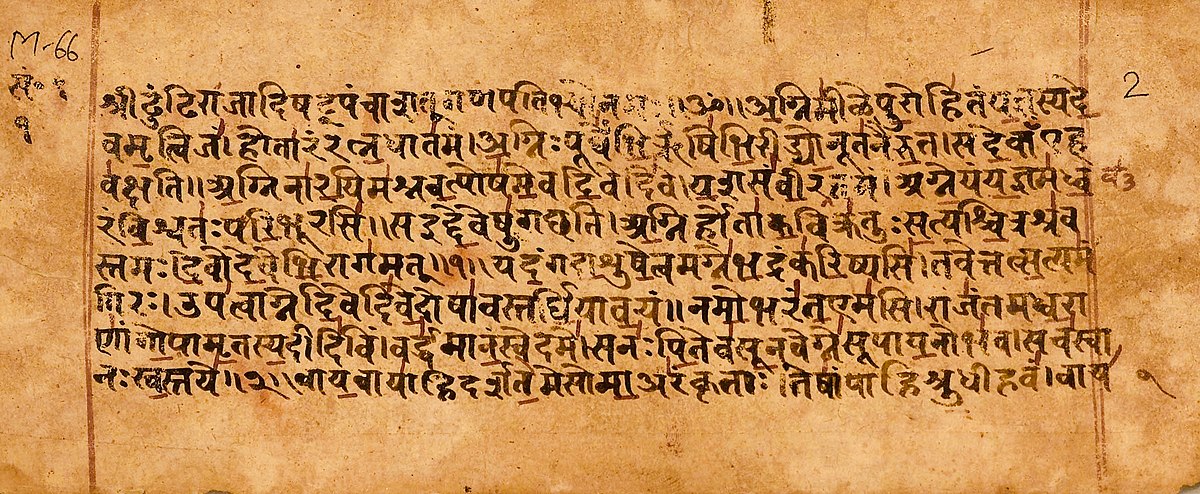 M-66
2
श्रीढुंढिराजा ॥ॐ॥ अग्निमीळेपुरोहितंयज्ञस्यदे
वमृत्विजं।होतारंरत्नधातमं।अग्निःपूर्वेभिर्ऋषिभिरीड्योनूतनैरुत।सदेवाँएह
वक्षति॥अग्निनारयिमश्नवत्पोषमेवदिवेदिवे।यशसंवीरवत्तमं।अग्नेयंयज्ञमध्व
रंविश्वतःपरिभूरसि॥सइद्देवेषुगछति।अग्निर्होताकविक्रतुःसत्यश्चित्रश्रव
स्तमः।देवोदेवेभिरागमत्॥१॥यदंगदाशुषेत्वमग्नेभद्रंकरिष्यसि।तवेत्तत्सत्यमं
गिरः।उपत्वाग्नेदिवेदिवेदोषावस्तर्धियावयं॥नमोभरंतएमसि।राजंतमध्वरा
णांगोपामृतस्यदीदिविं।वर्द्धमानंस्वेदमे।सनःपितेवसूनवेग्नेसूपायनोभव।सचस्वा
नःस्वस्तये॥२॥वायवायाहिदर्शतेमेसोमाअरंकृताः।तेषांपाहिश्रुधीहवं।वाय